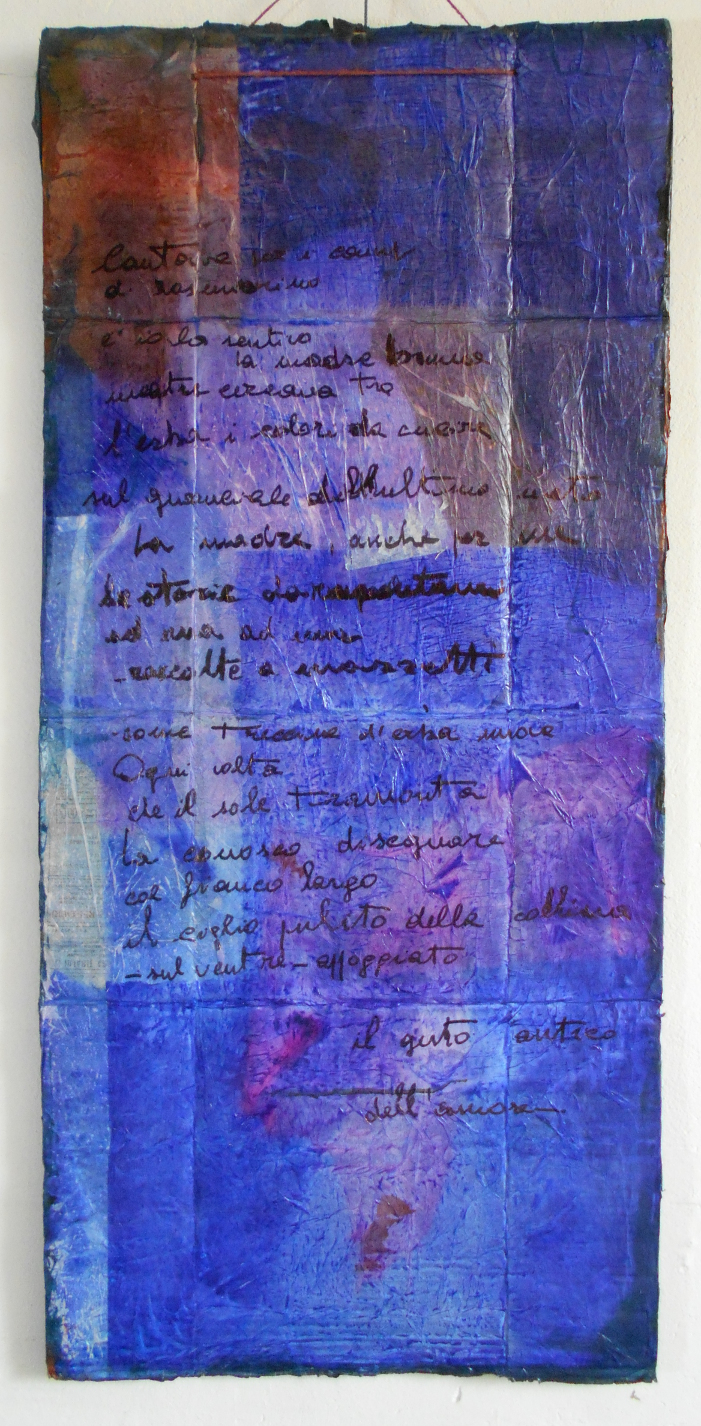 Cantava tra i
di rosmarino
e io la sentivo
la madre bruna
mentre cercava tra
l'erba i colori da cucire
sul guanciale dell'ultimo nato
La madre, anche per me
le storie da
ad una ad una
- raccolte a mazzetti
come d'erba nuova
Ogni volta
che il sole tramonta
La conosco disegnare
col fianco largo
il ciglio pulito della collina
- sul ventre - appoggiato
il gusto antico
dell'amore